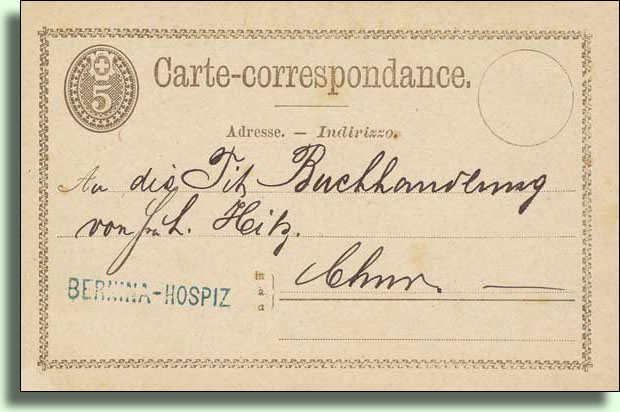 5
Carte-correspondance.
Adresse. — Indirizzo.
An die Tit. Buchhandlung
von L. Hitz.
Chur.
in
a
BERNINA-HOSPIZ